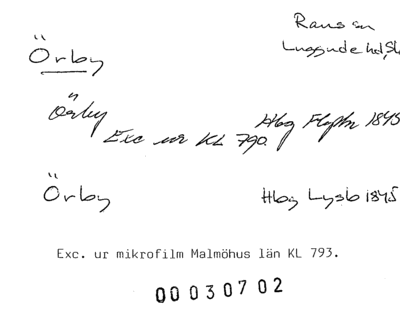 Raus sn
Örby Luggude hd, Sk
Örby Hbg Flyfbr 1845
Exc ur KL 790.
Örby Hbg Lysb 1845
Exc. ur mikrofilm Malmöhus län KL 793.
00030702